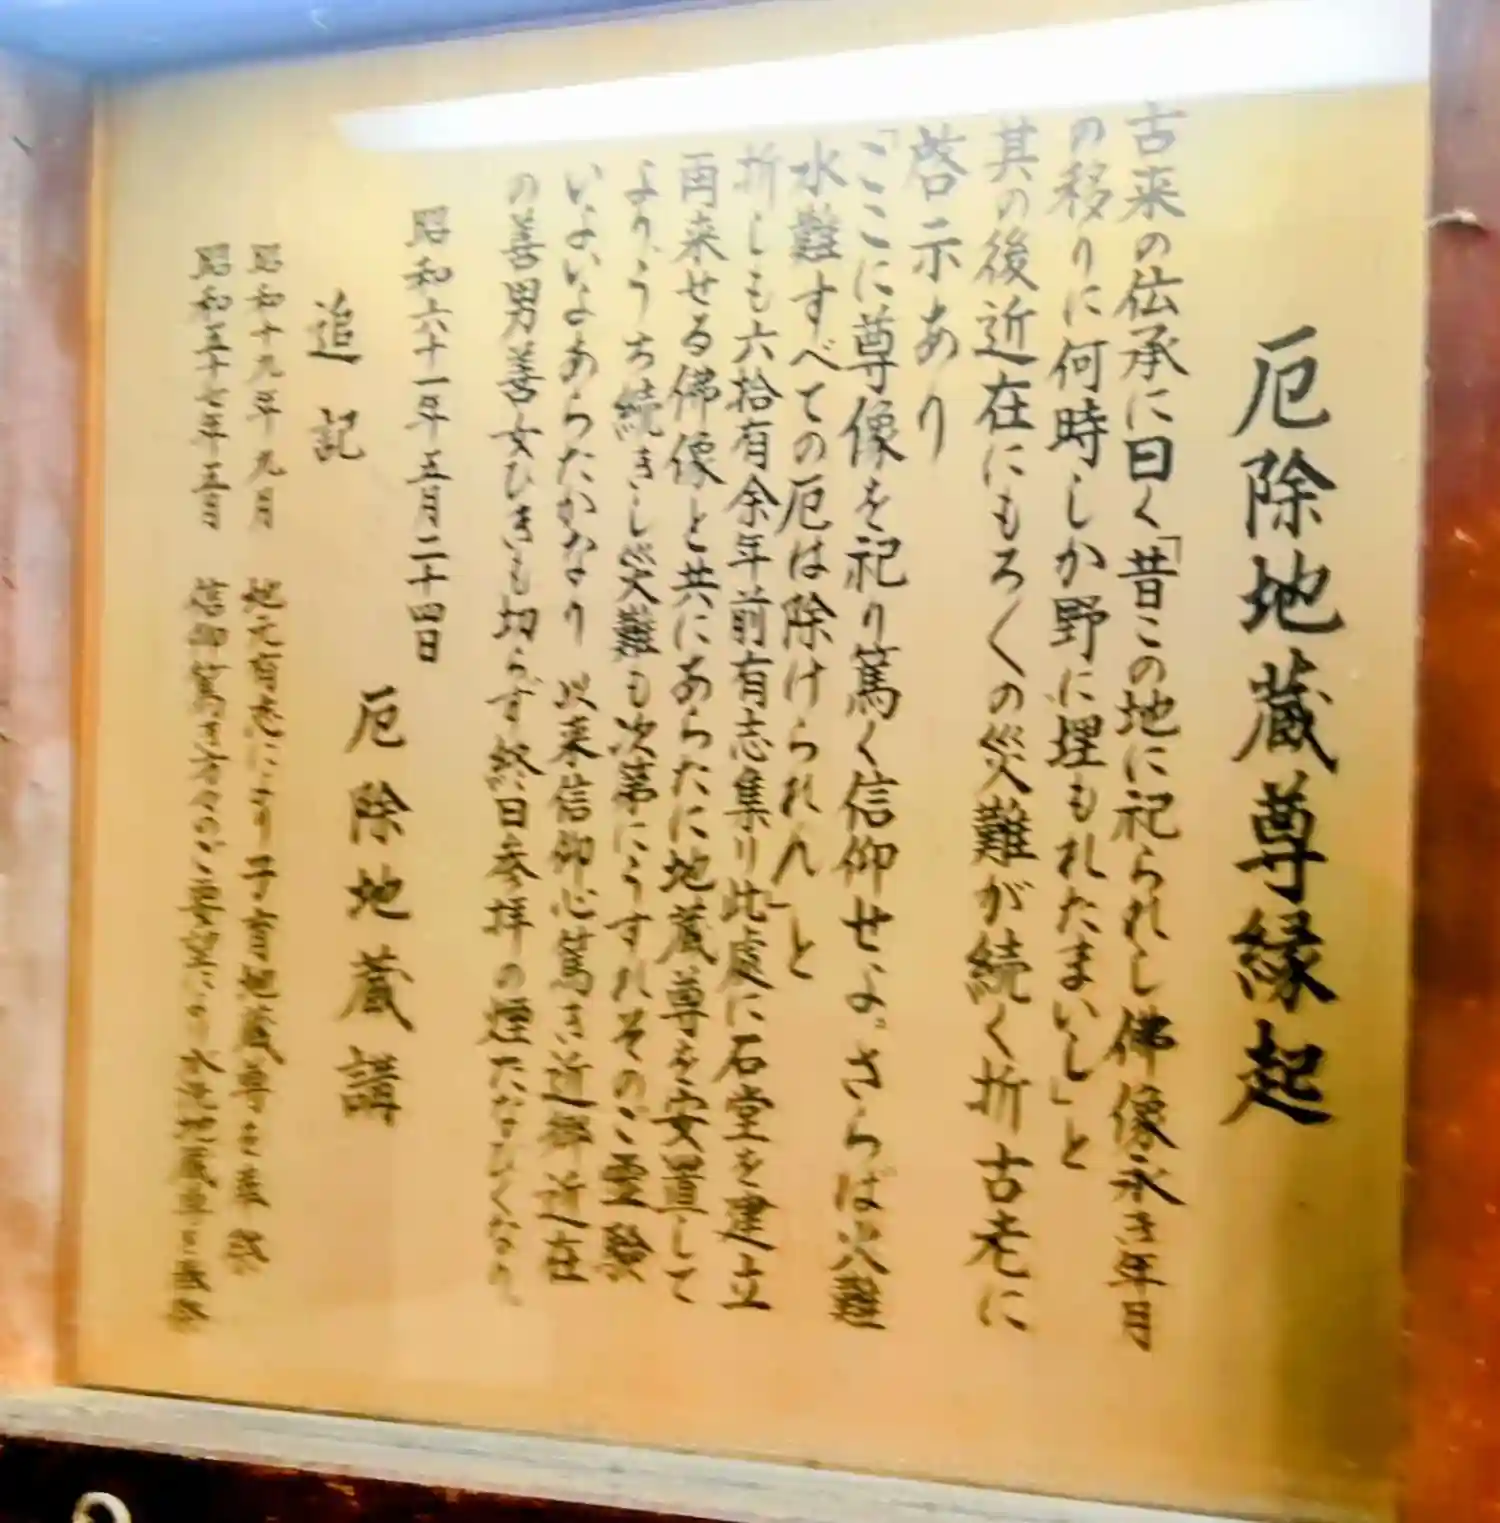 厄除地蔵尊縁起
古来の伝承に曰く「昔この地に祀られし佛像永き年月
の移りに何時しか野に埋もれたまいし」と
其の後近在にもろくの災難が続く折古老に
啓示あり
「ここに尊像を祀り篤く信仰せよ。さらば火難
水難すべての厄は除けられん」と
折しも六拾有余年前有志集り此處に石堂を建立
再来せる佛像と共にあらたに地蔵尊を安置して
より、うち続きし災難も次第にうすれそのご霊験
いよいよあらたかなり 以来信仰心篤き近郷近在
の善男善女ひきも切らず終日参拝の煙たなびくなり
昭和六十一年五月二十四日
厄除地蔵講
追記
昭和十九年九月 地元有志により子育地蔵尊を奉祭
昭和五十七年五月 信仰篤き方々のご要望により水洗地蔵尊を奉祭